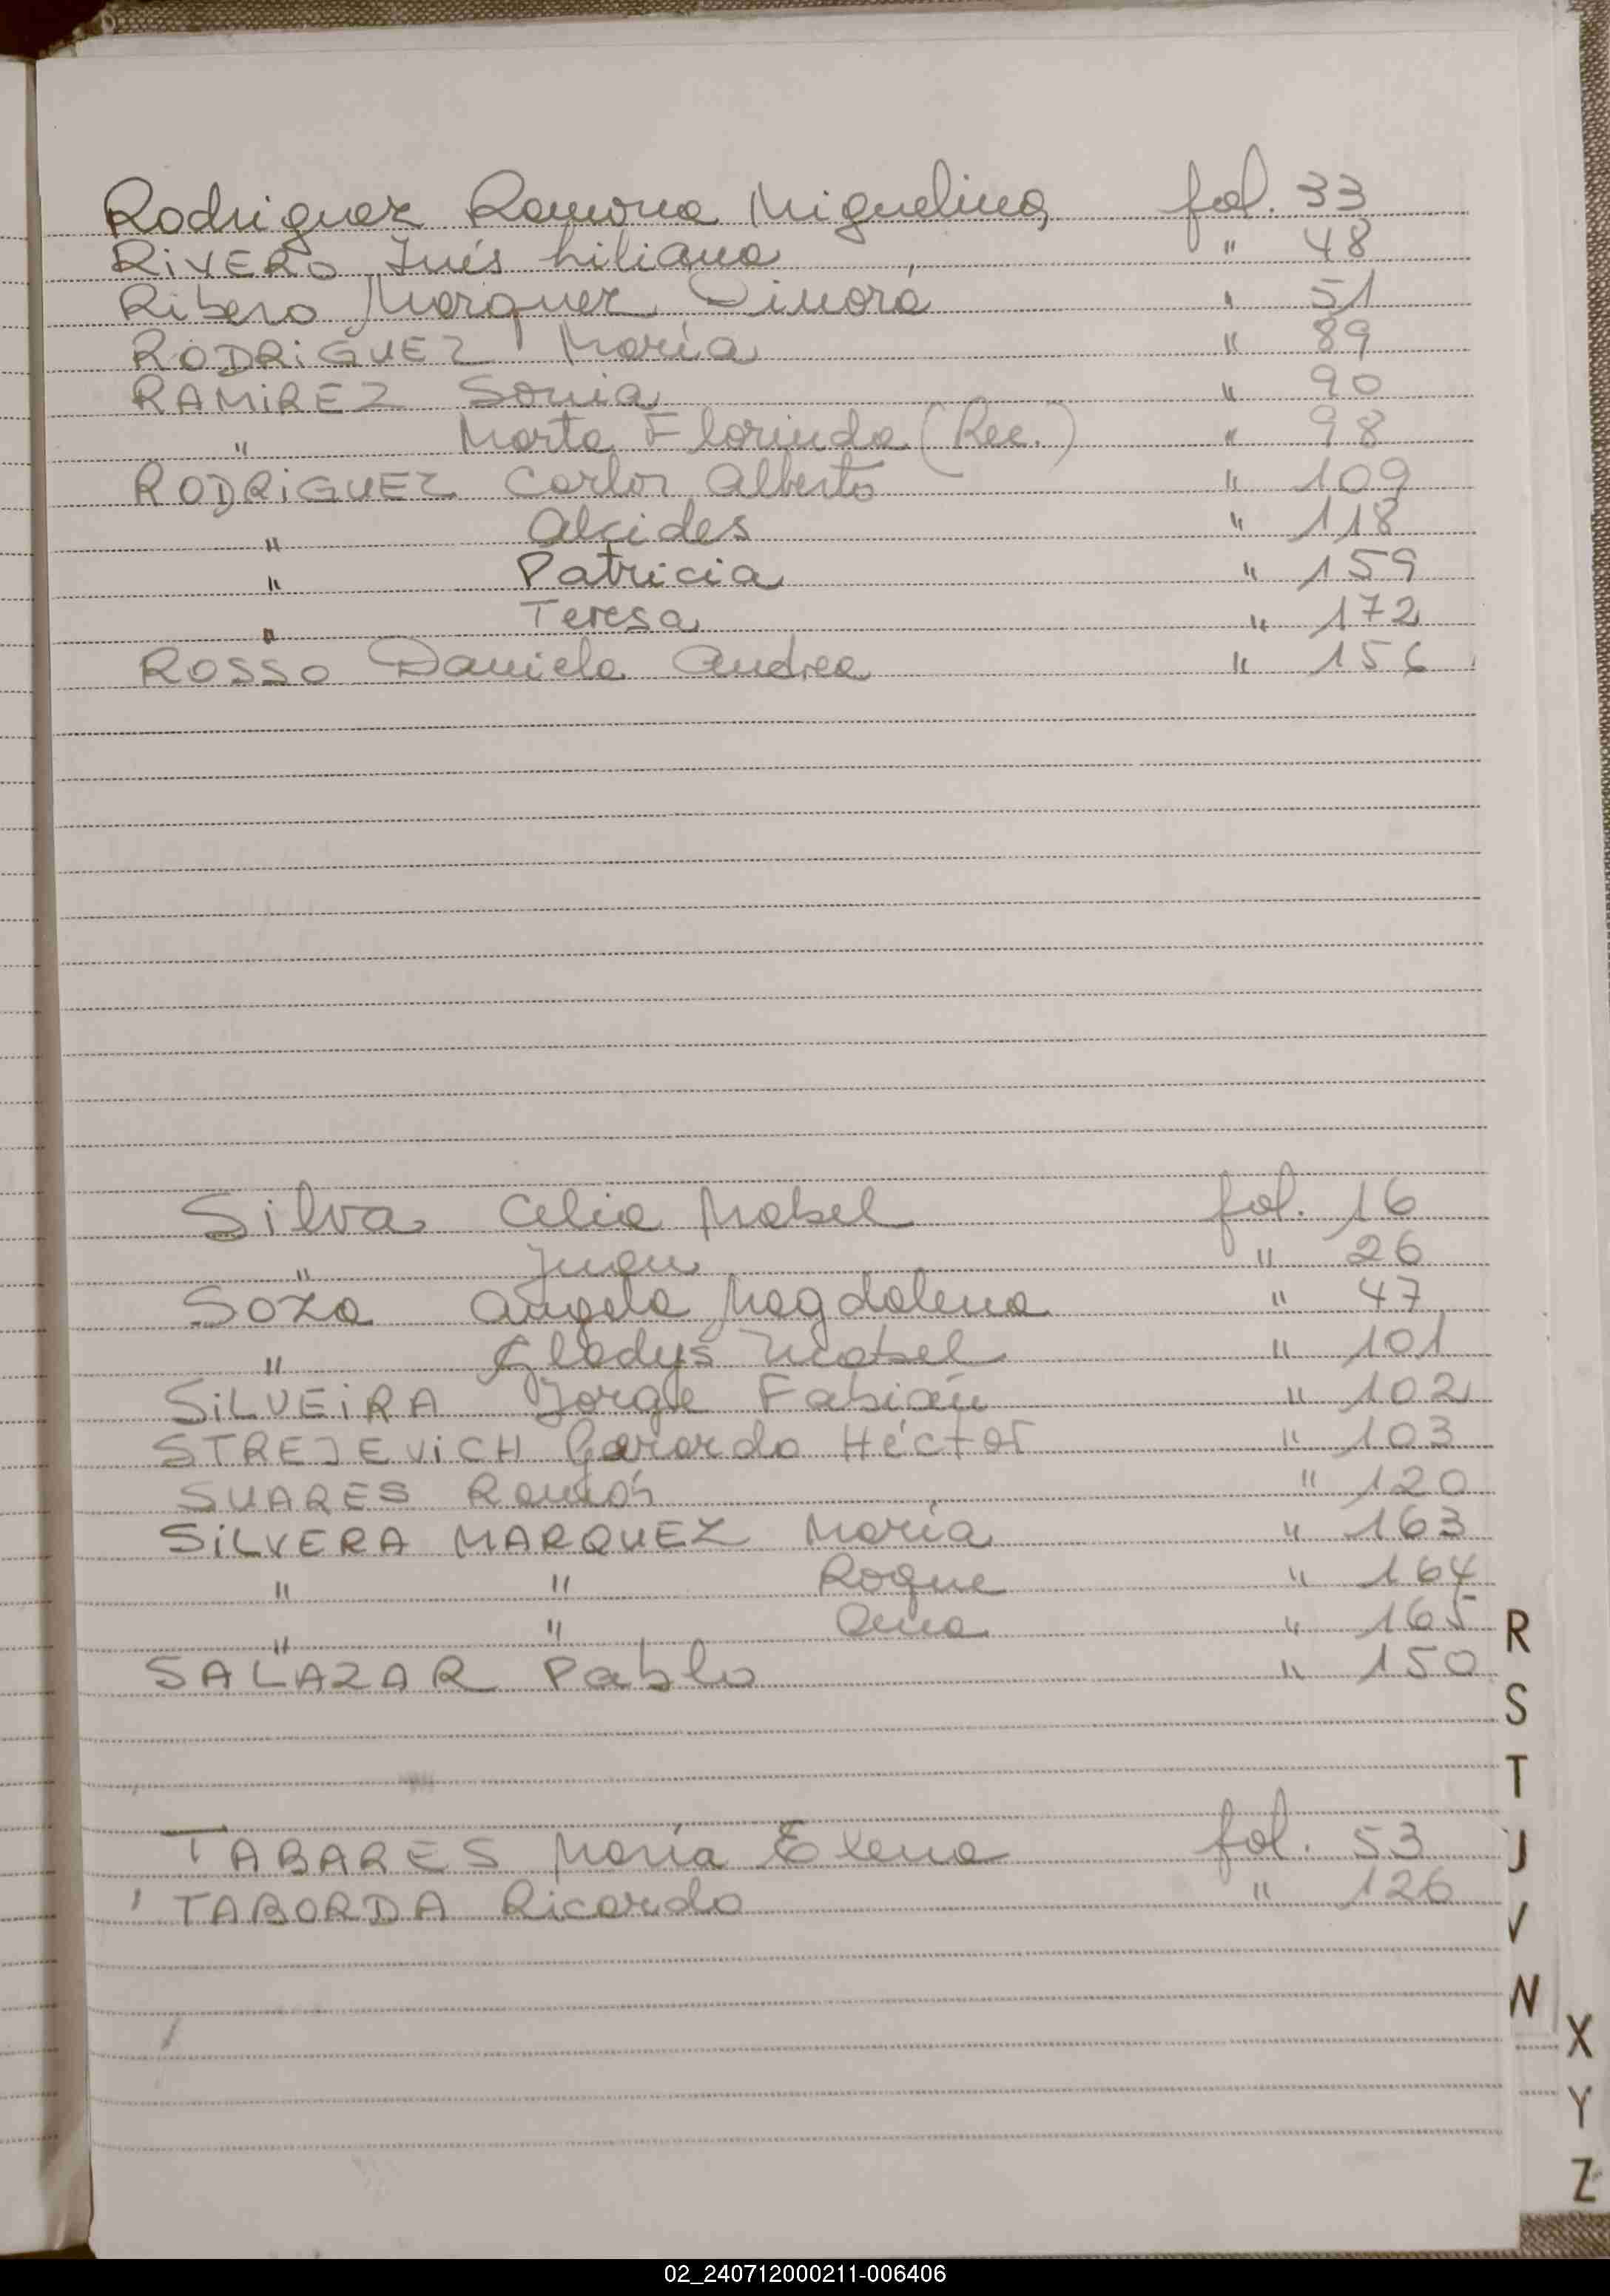 Rodriguez Ramona Miguelina fol. 33
RIVERO Inés Liliana " 48
Ribero Marquez Dinorá " 51
RODRIGUEZ María " 89
RAMIREZ Sonia " 90
" Marta Florinda (Rec.) " 98
RODRIGUEZ Carlos Alberto " 109
" Alcides " 118
" Patricia " 159
" Teresa " 172
ROSSO Daniela Andrea " 156
Silva Celia Mabel fol. 16
" Juan " 26
Soza Angela Magdalena " 47
" Gladys Mabel " 101
SILVEIRA Jorge Fabián " 102
STREJEVICH Gerardo Héctor " 103
SUARES Ramón " 120
SILVERA MARQUEZ María " 163
" " Roque " 164
" " Ana " 165
SALAZAR Pablo " 150
TABARES María Elena fol. 53
TABORDA Ricardo " 126
R
S
T
U
V
W
X
Y
Z
02_240712000211-006406